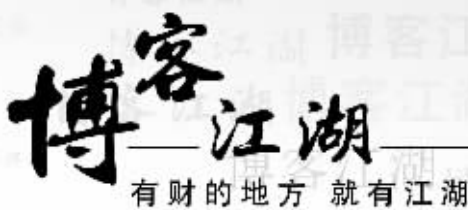 博客江湖
有财的地方 就有江湖